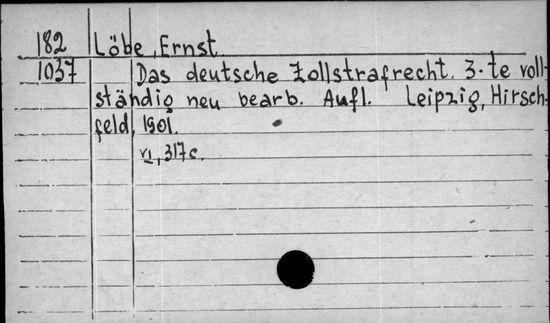 182 Löbe, Ernst.
1037 Das deutsche Zollstrafrecht. 3-te voll-
ständig neu bearb. Aufl. Leipzig, Hirsch-
feld, 1901.
VI, 317c.